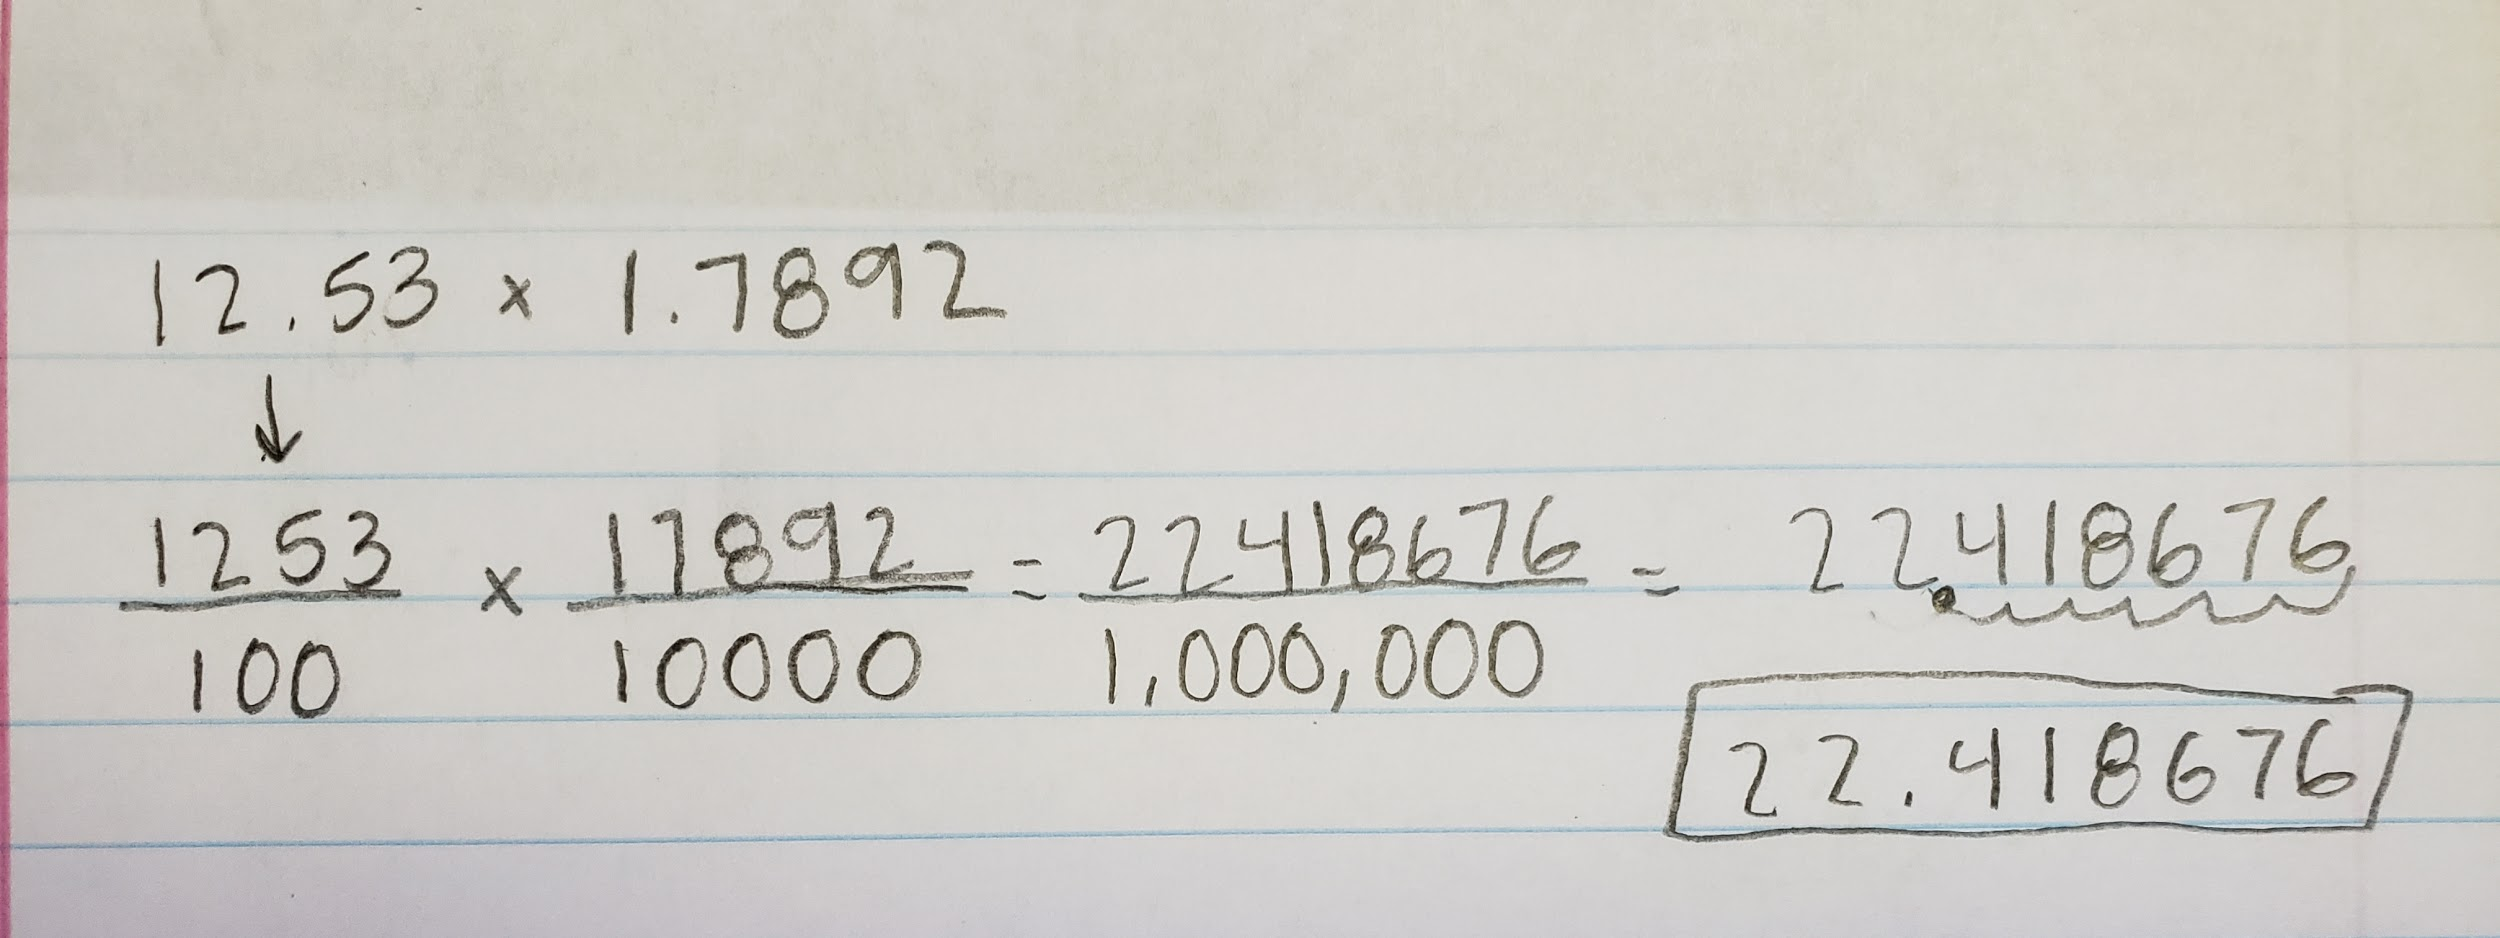 12.53 × 1.7892
↓
1253/100 × 17892/10000 = 22418676/1,000,000 = 22.418676
22.418676